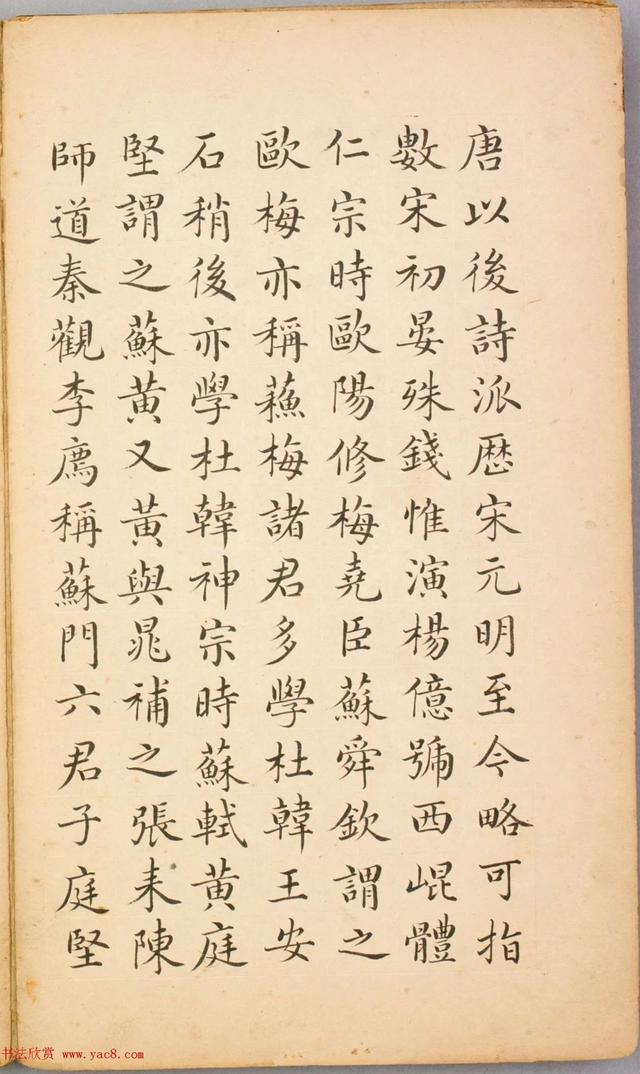 唐以後詩派歷宋元明至今略可指
數宋初晏殊錢惟演楊億號西崐體
仁宗時歐陽修梅堯臣蘇舜欽謂之
歐梅亦稱蘓梅諸君多學杜韓王安
石稍後亦學杜韓神宗時蘇軾黃庭
堅謂之蘇黃又黃與晁補之張耒陳
師道秦觀李廌稱蘇門六君子庭堅
书法欣赏 www.yac8.com